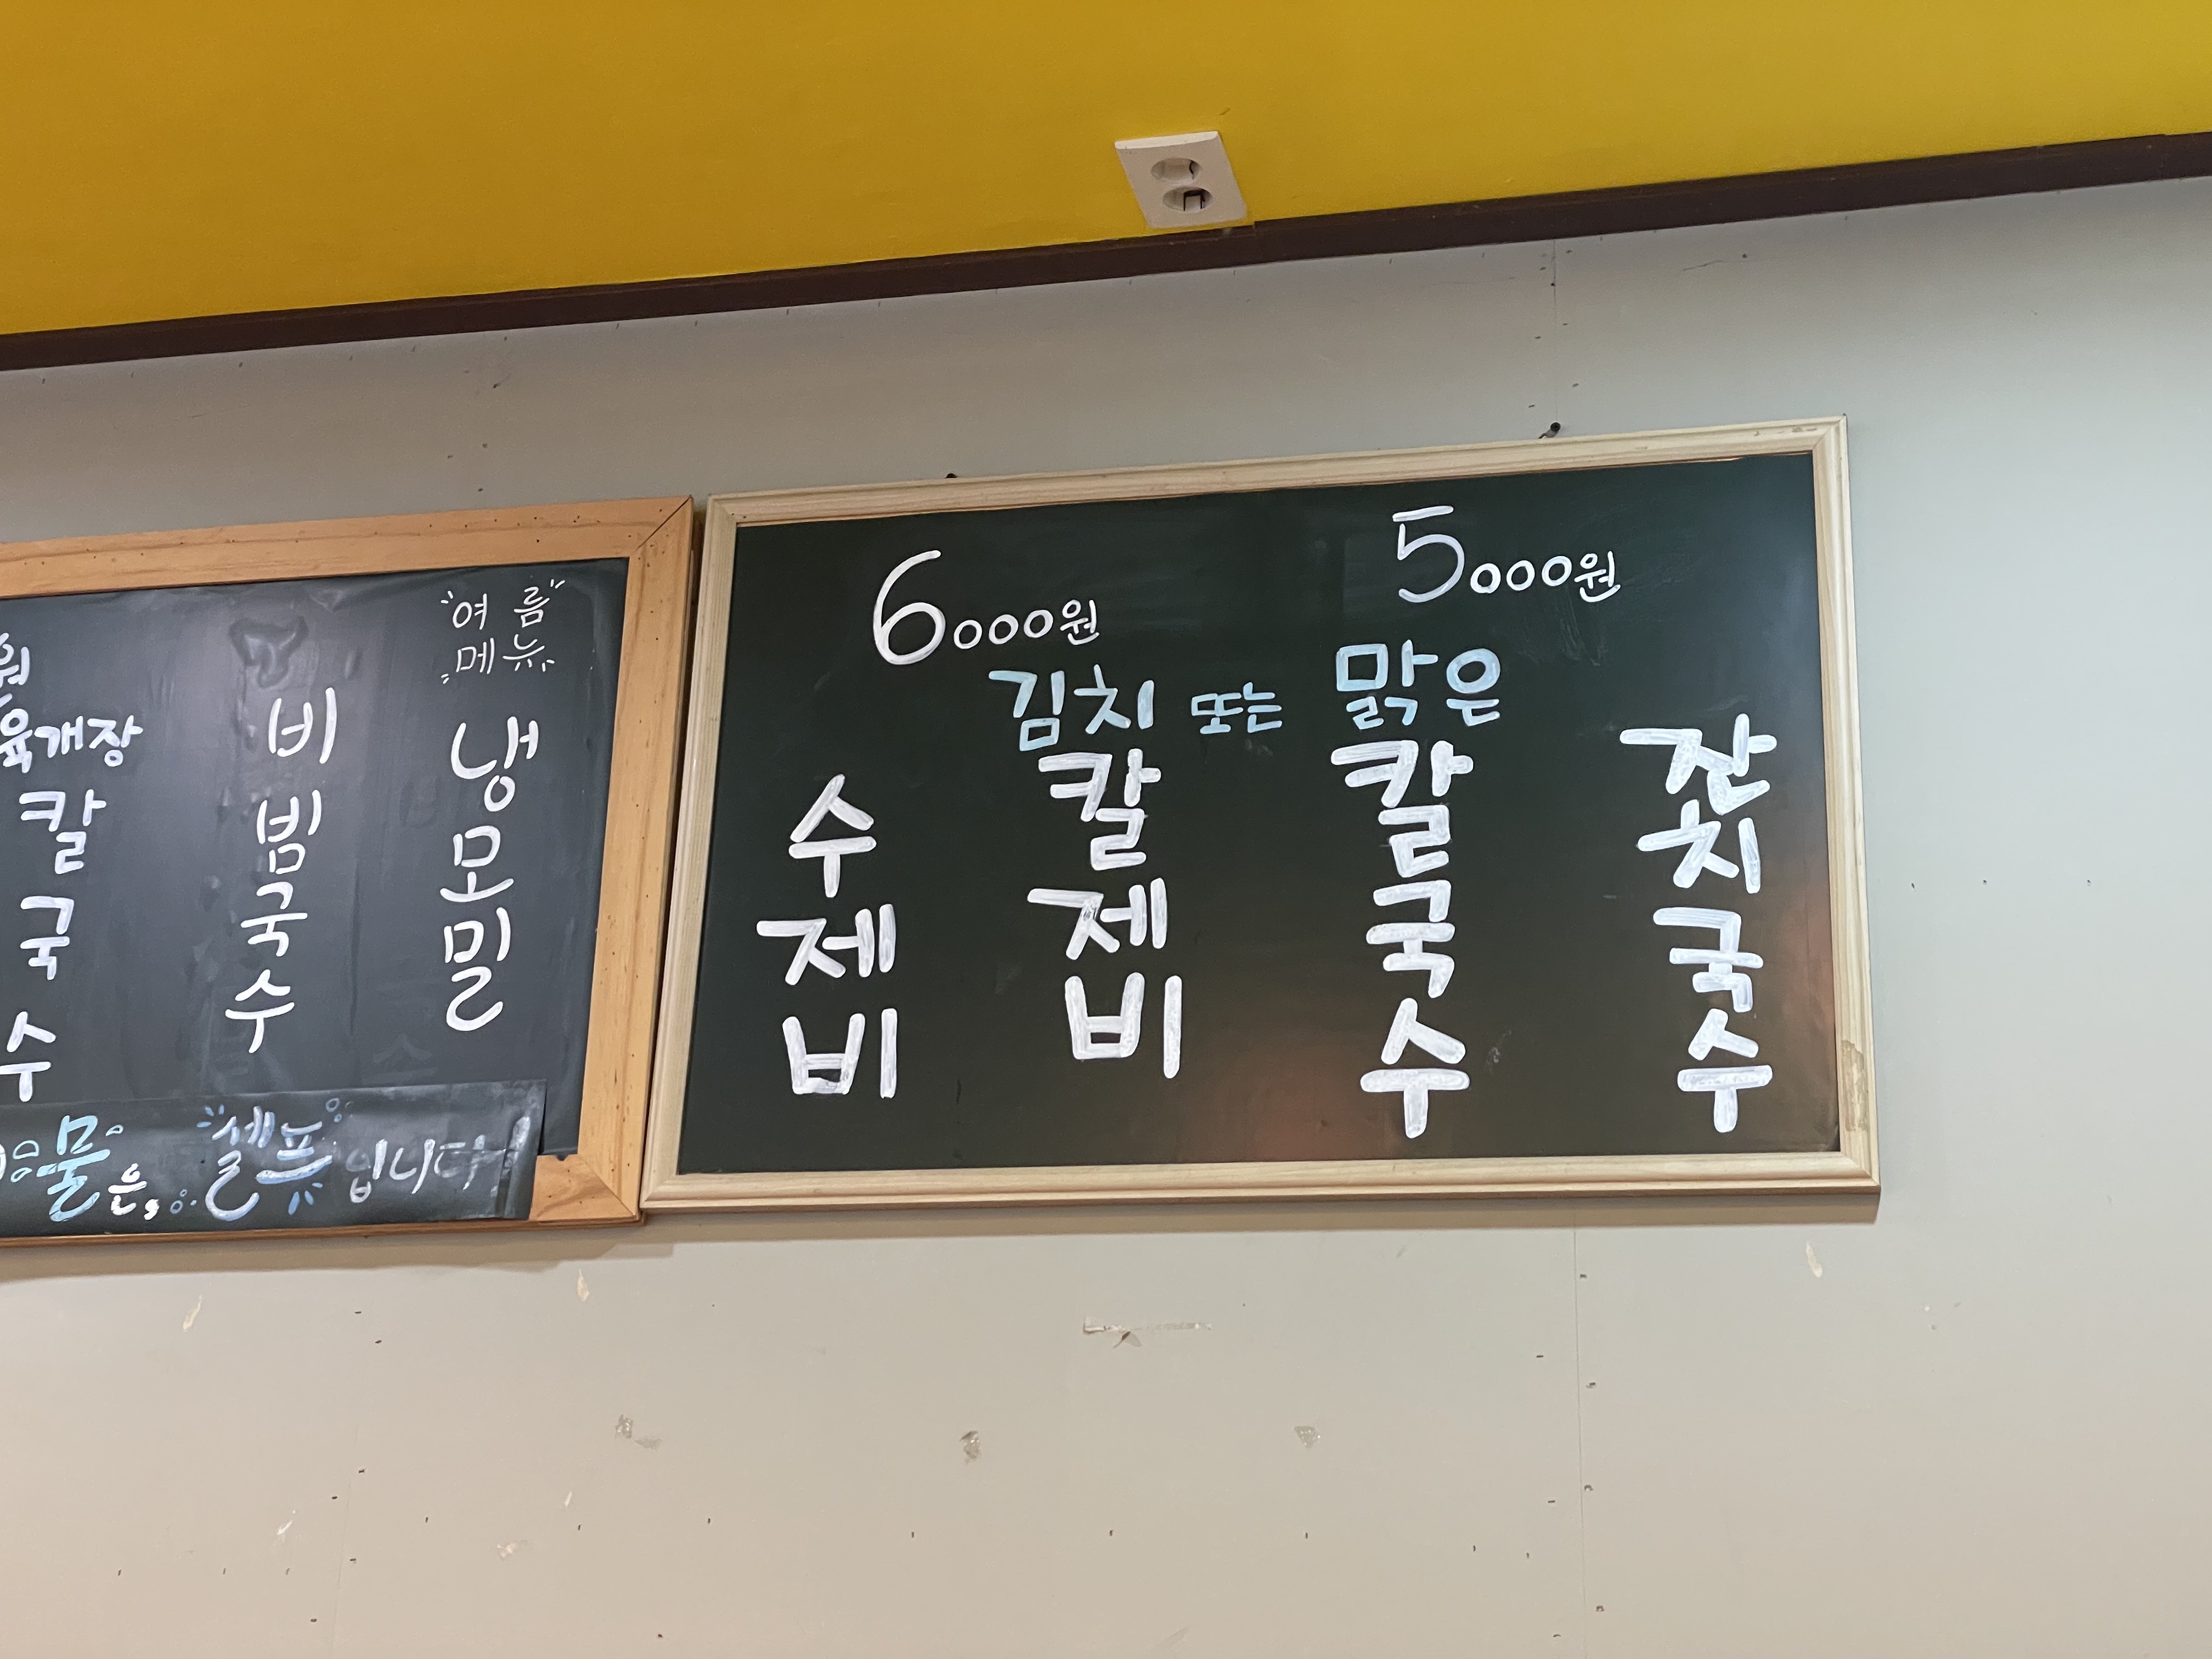 "여름
메뉴"
원
육개장
칼국수
비빔국수
냉모밀
물은, 셀프입니다!
6000원
5000원
김치 또는 맑은
수제비
칼제비
칼국수
잔치국수